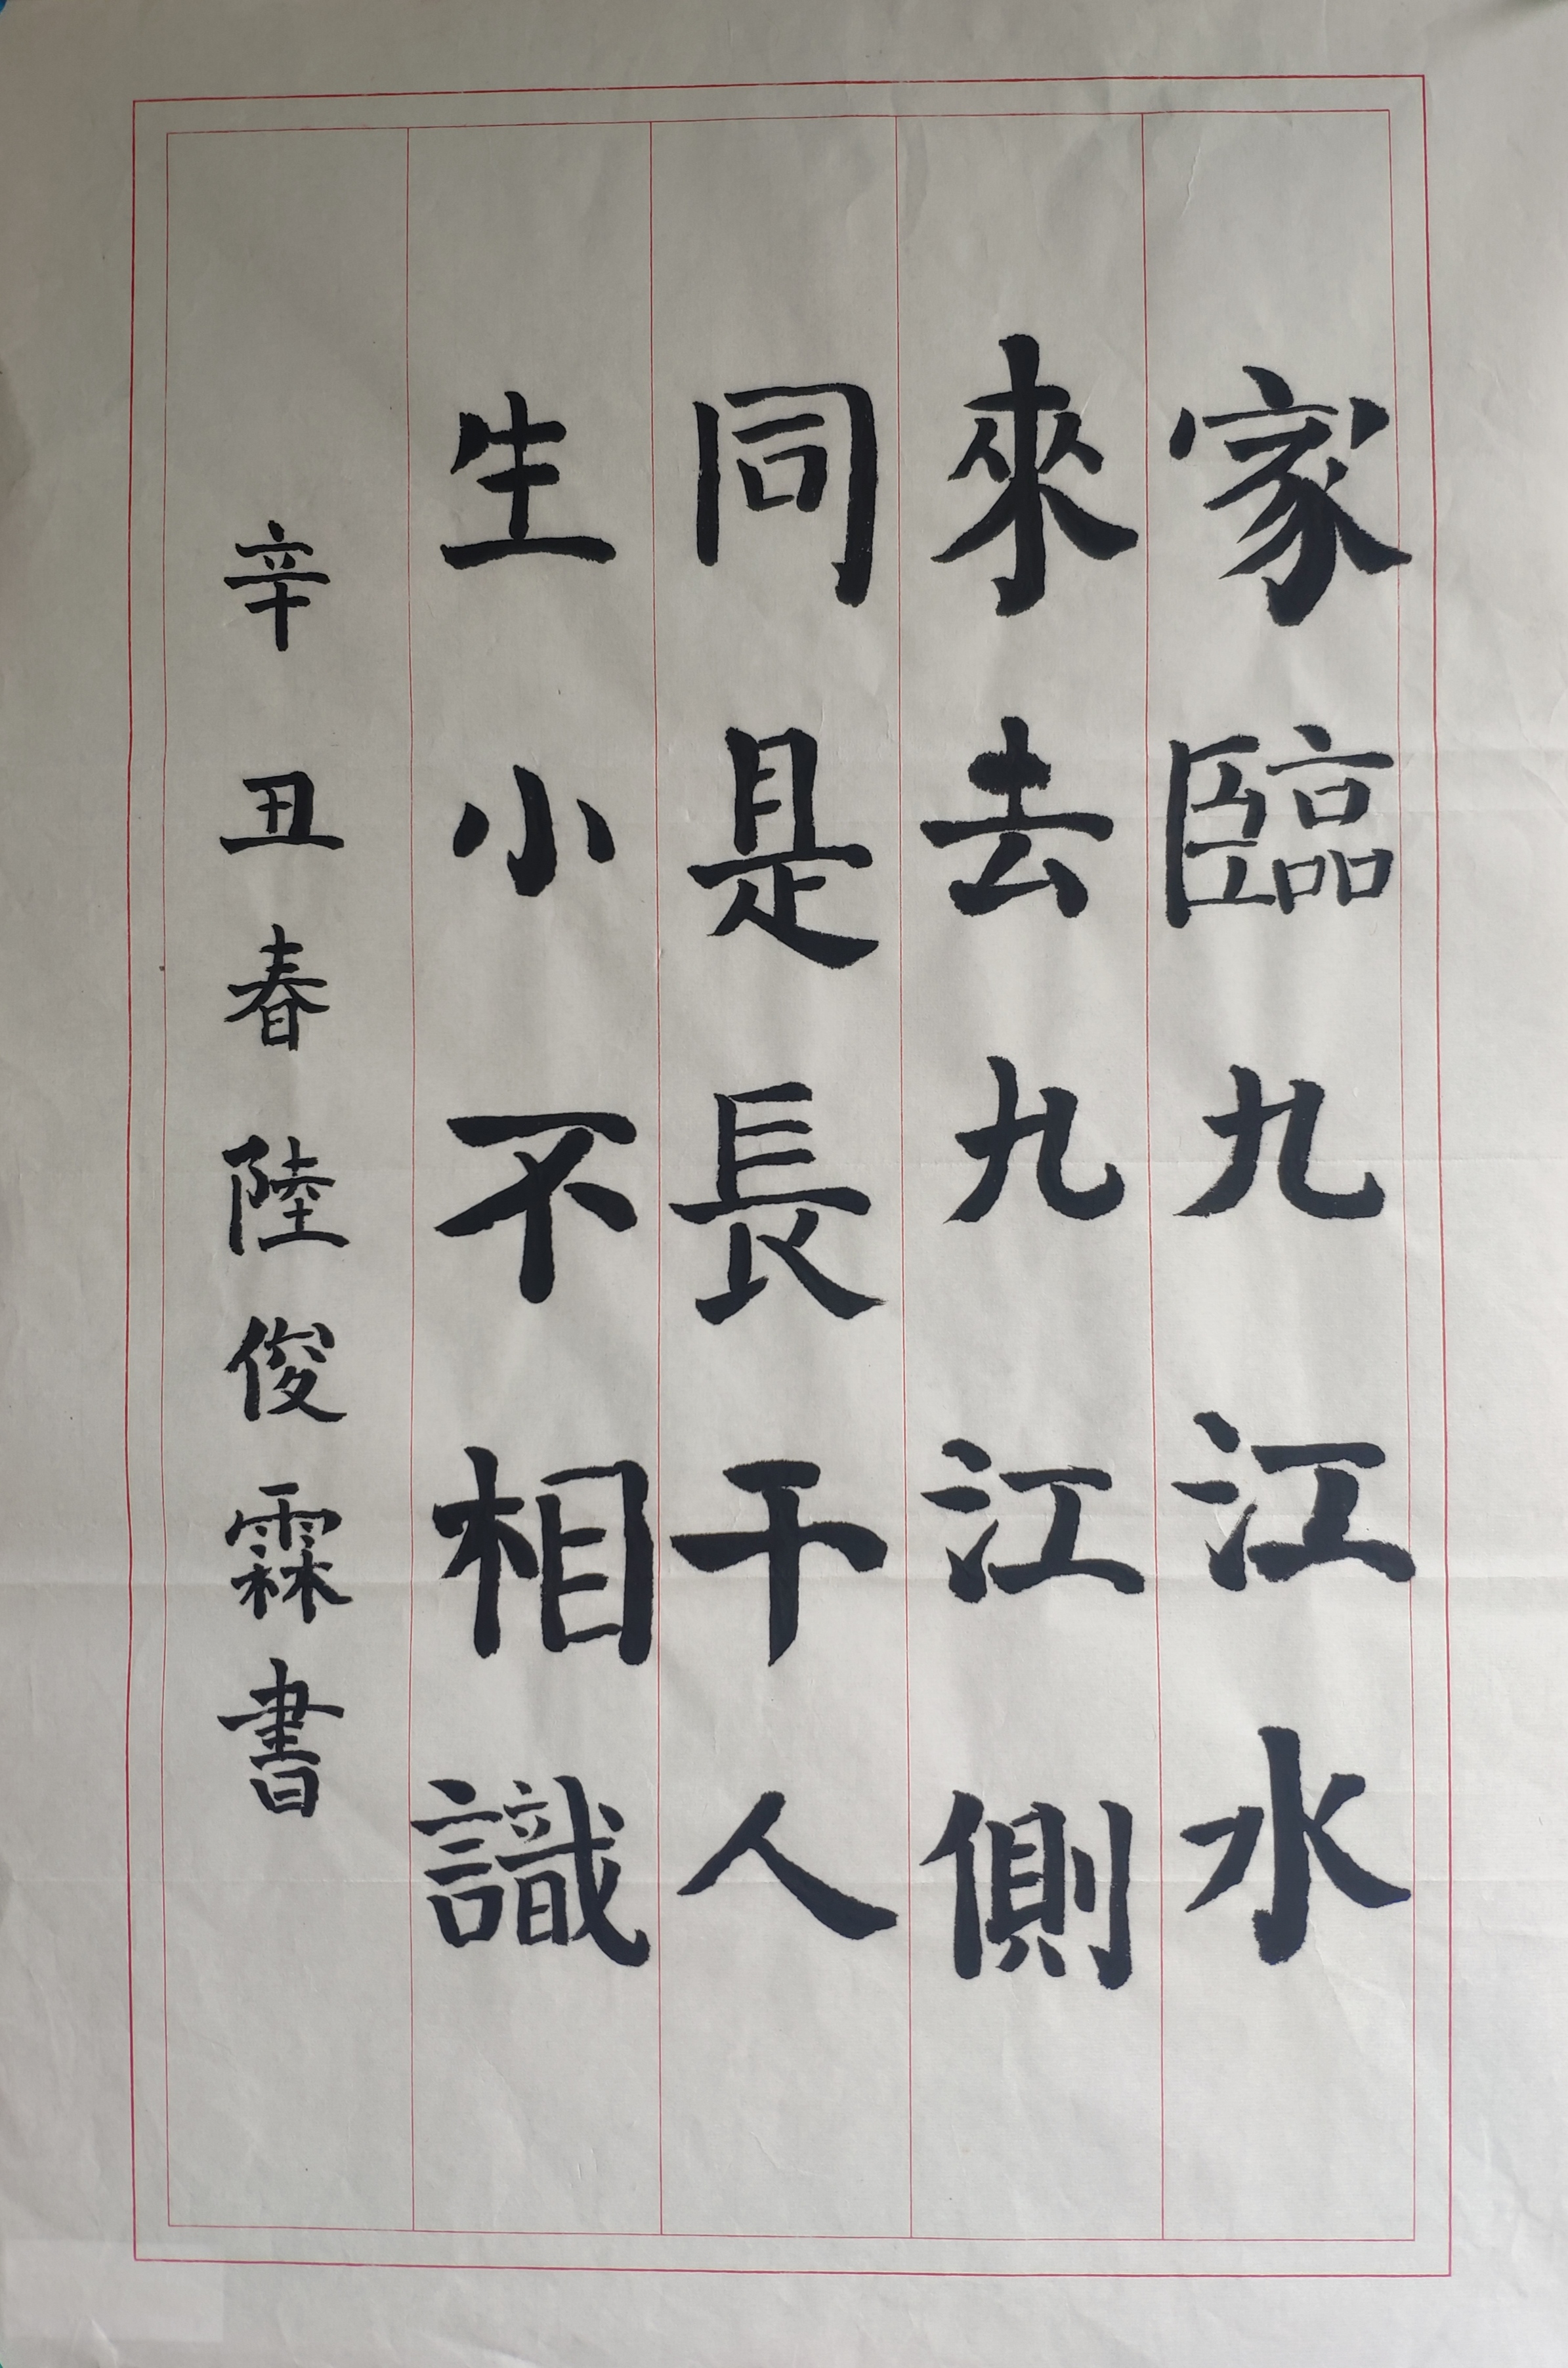 家臨九江水
來去九江側
同是長干人
生小不相識
辛丑春陸俊霖書